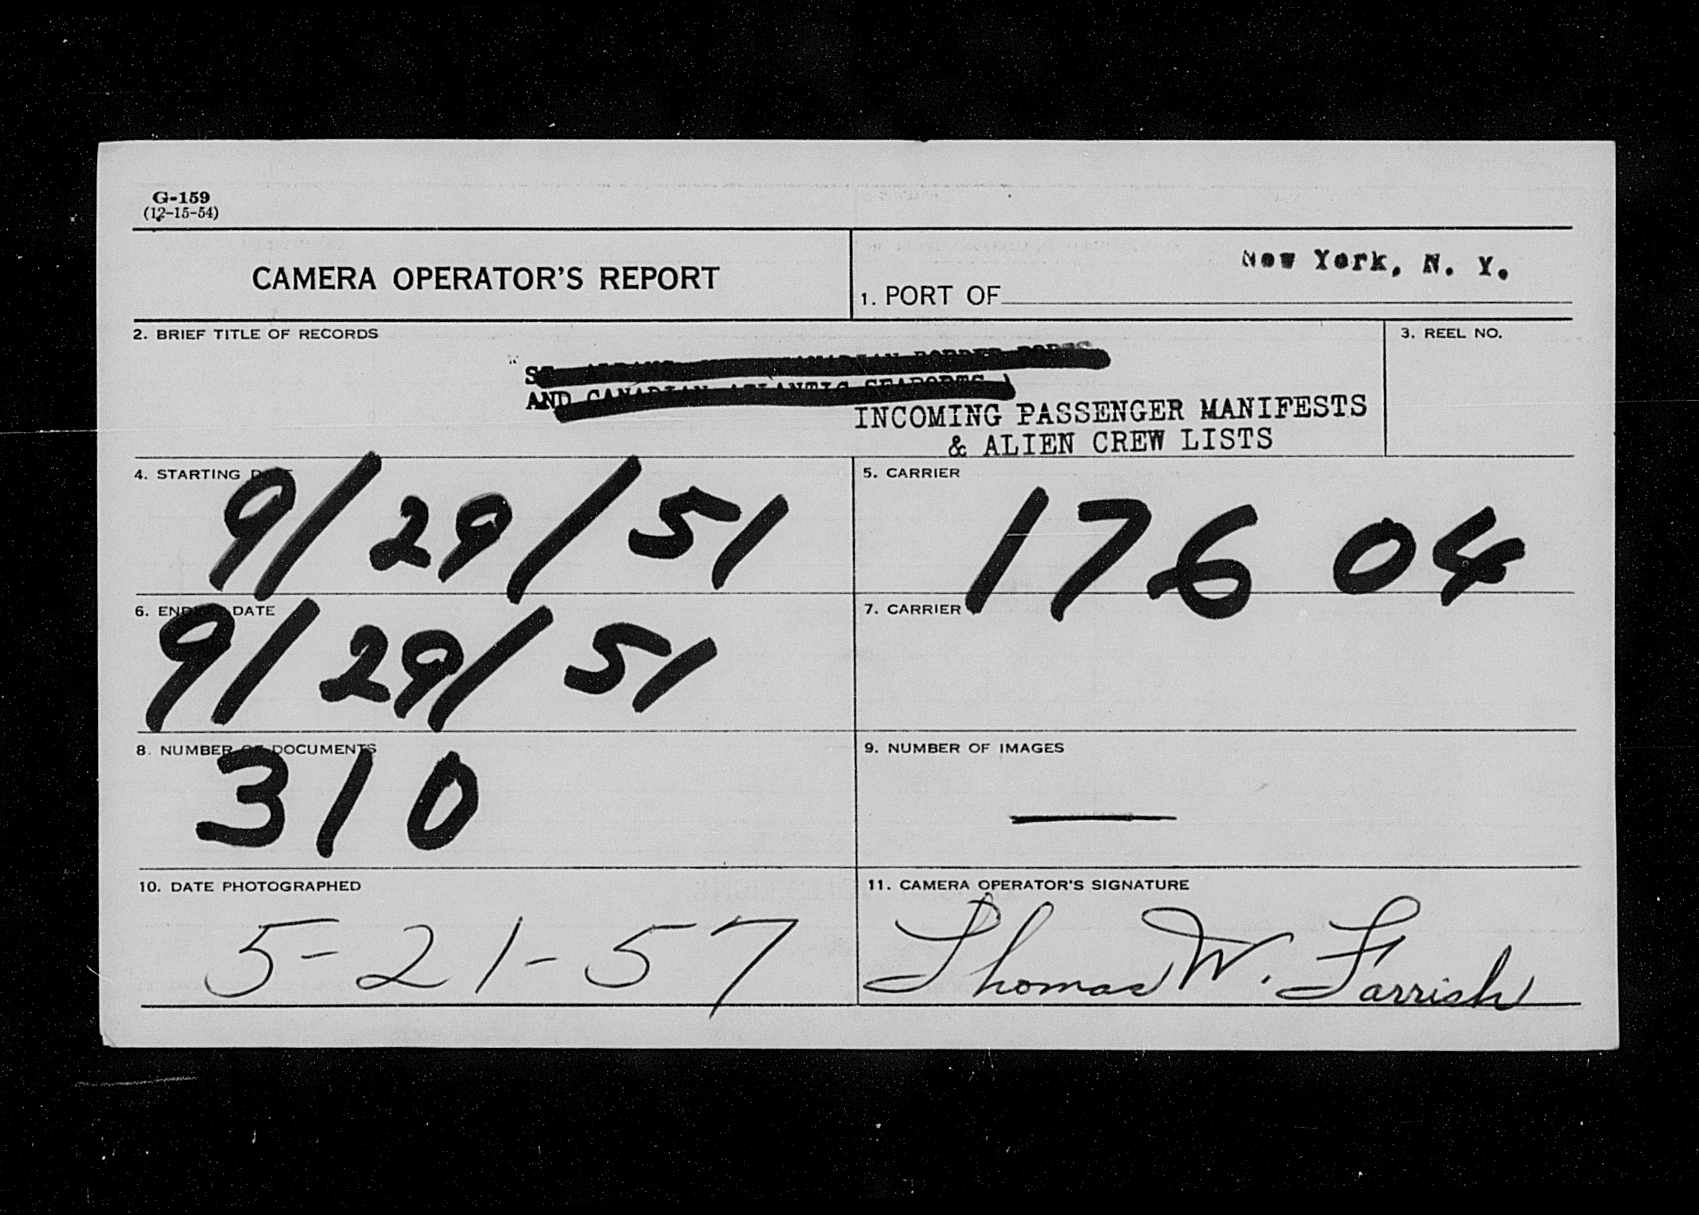 G-159
(12-15-54)
CAMERA OPERATOR'S REPORT
1. PORT OF New York, N. Y.
2. BRIEF TITLE OF RECORDS
3. REEL NO.
AND CANADIAN ATLANTIC SEAPORTS
INCOMING PASSENGER MANIFESTS
& ALIEN CREW LISTS
4. STARTING DATE
9/29/51
5. CARRIER
176 04
6. ENDING DATE
9/29/51
7. CARRIER
8. NUMBER OF DOCUMENTS
310
9. NUMBER OF IMAGES
—
10. DATE PHOTOGRAPHED
5-21-57
11. CAMERA OPERATOR'S SIGNATURE
Thomas W. Farrish